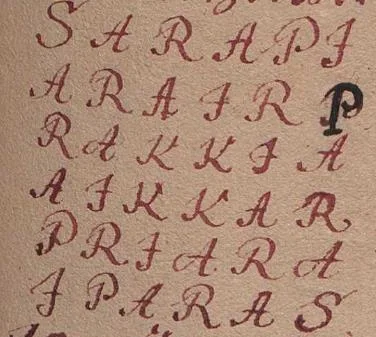 S A R A P I
A R A I R P
R A K K I A
A I K K A R
P R I A R A
I P A R A S